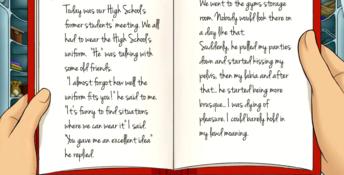 Today was our High School's
former students' meeting. We all
had to wear the High School's
uniform. "He" was talking with
some old friends.
"I almost forgot how well the
uniform fits you!" he said to me.
"It's funny to find situations
where we can wear it" I said.
"You gave me an excellent idea"
he replied.
We went to the gym's storage
room. Nobody would look there on
a day like that.
Suddenly, he pulled my panties
down and started kissing my
pelvis, then my labia and after
that... he started being more
brusque... I was dying of
pleasure. I could barely hold in
my lewd moaning.